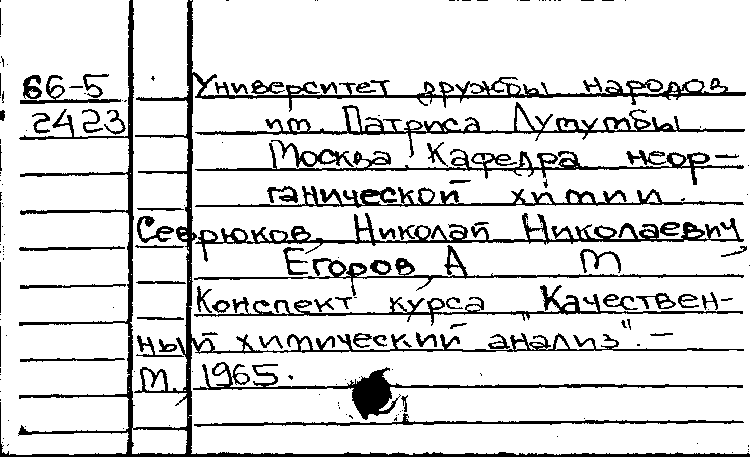 66-5 Университет дружбы народов
2423 им. Патриса Лумумбы
Москва. Кафедра неор-
ганической химии.
Севрюков, Николай Николаевич,
Егоров, А М
Конспект курса „Качествен-
ный химический анализ". -
М., 1965.